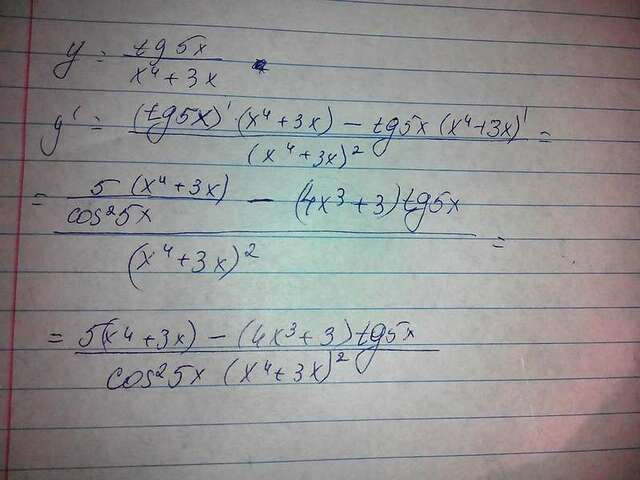 y = tg5x / (x⁴+3x)
y' = ((tg5x)'·(x⁴+3x) − tg5x (x⁴+3x)') / (x⁴+3x)² =
= (5(x⁴+3x) / cos²5x − (4x³+3)tg5x) / (x⁴+3x)² =
= (5(x⁴+3x) − (4x³+3)tg5x) / (cos²5x (x⁴+3x)²)